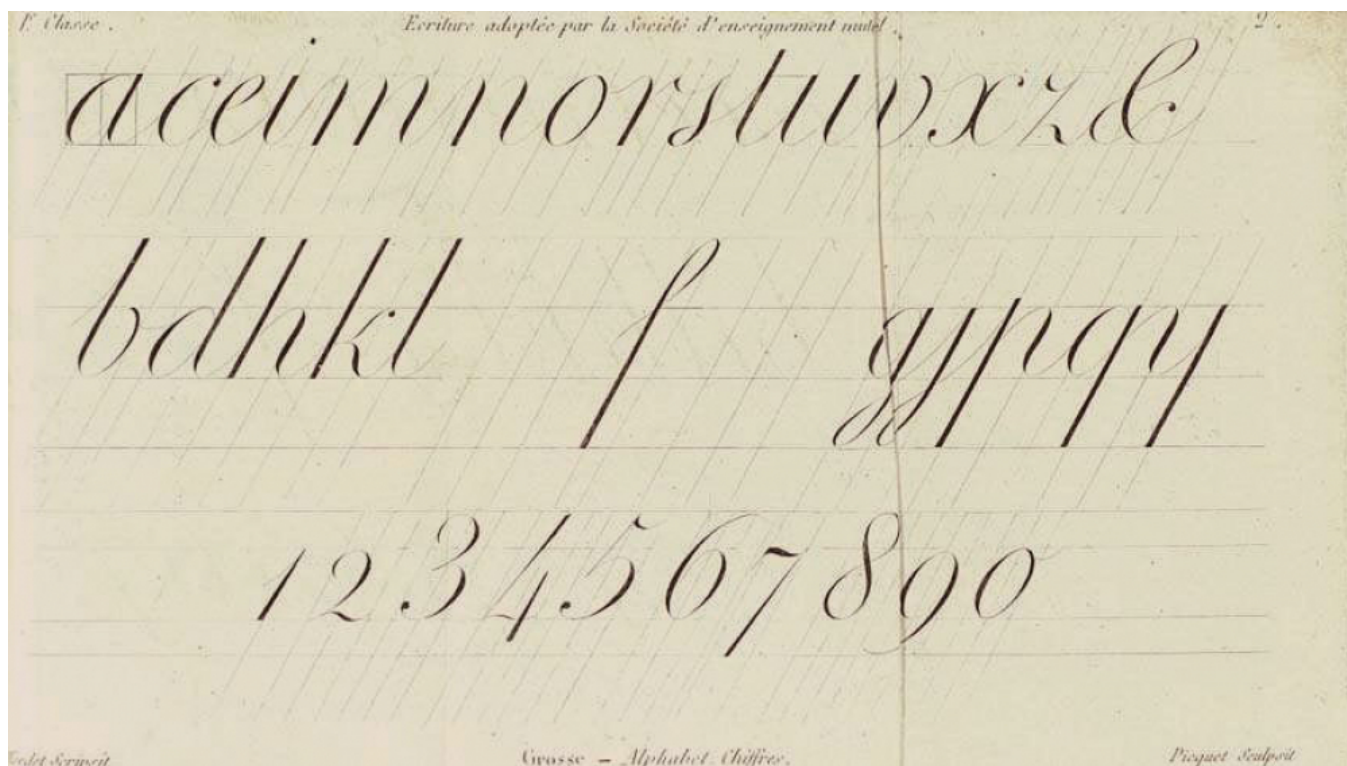 Classe . Ecriture adoptée par la Société d'enseignement mutel . 2 .
a c e i m n o r s t u v x z &
b d h k l f g j p q y
1 2 3 4 5 6 7 8 9 0
Scripsit Grosse – Alphabet. Chiffres. Picquet Sculpsit